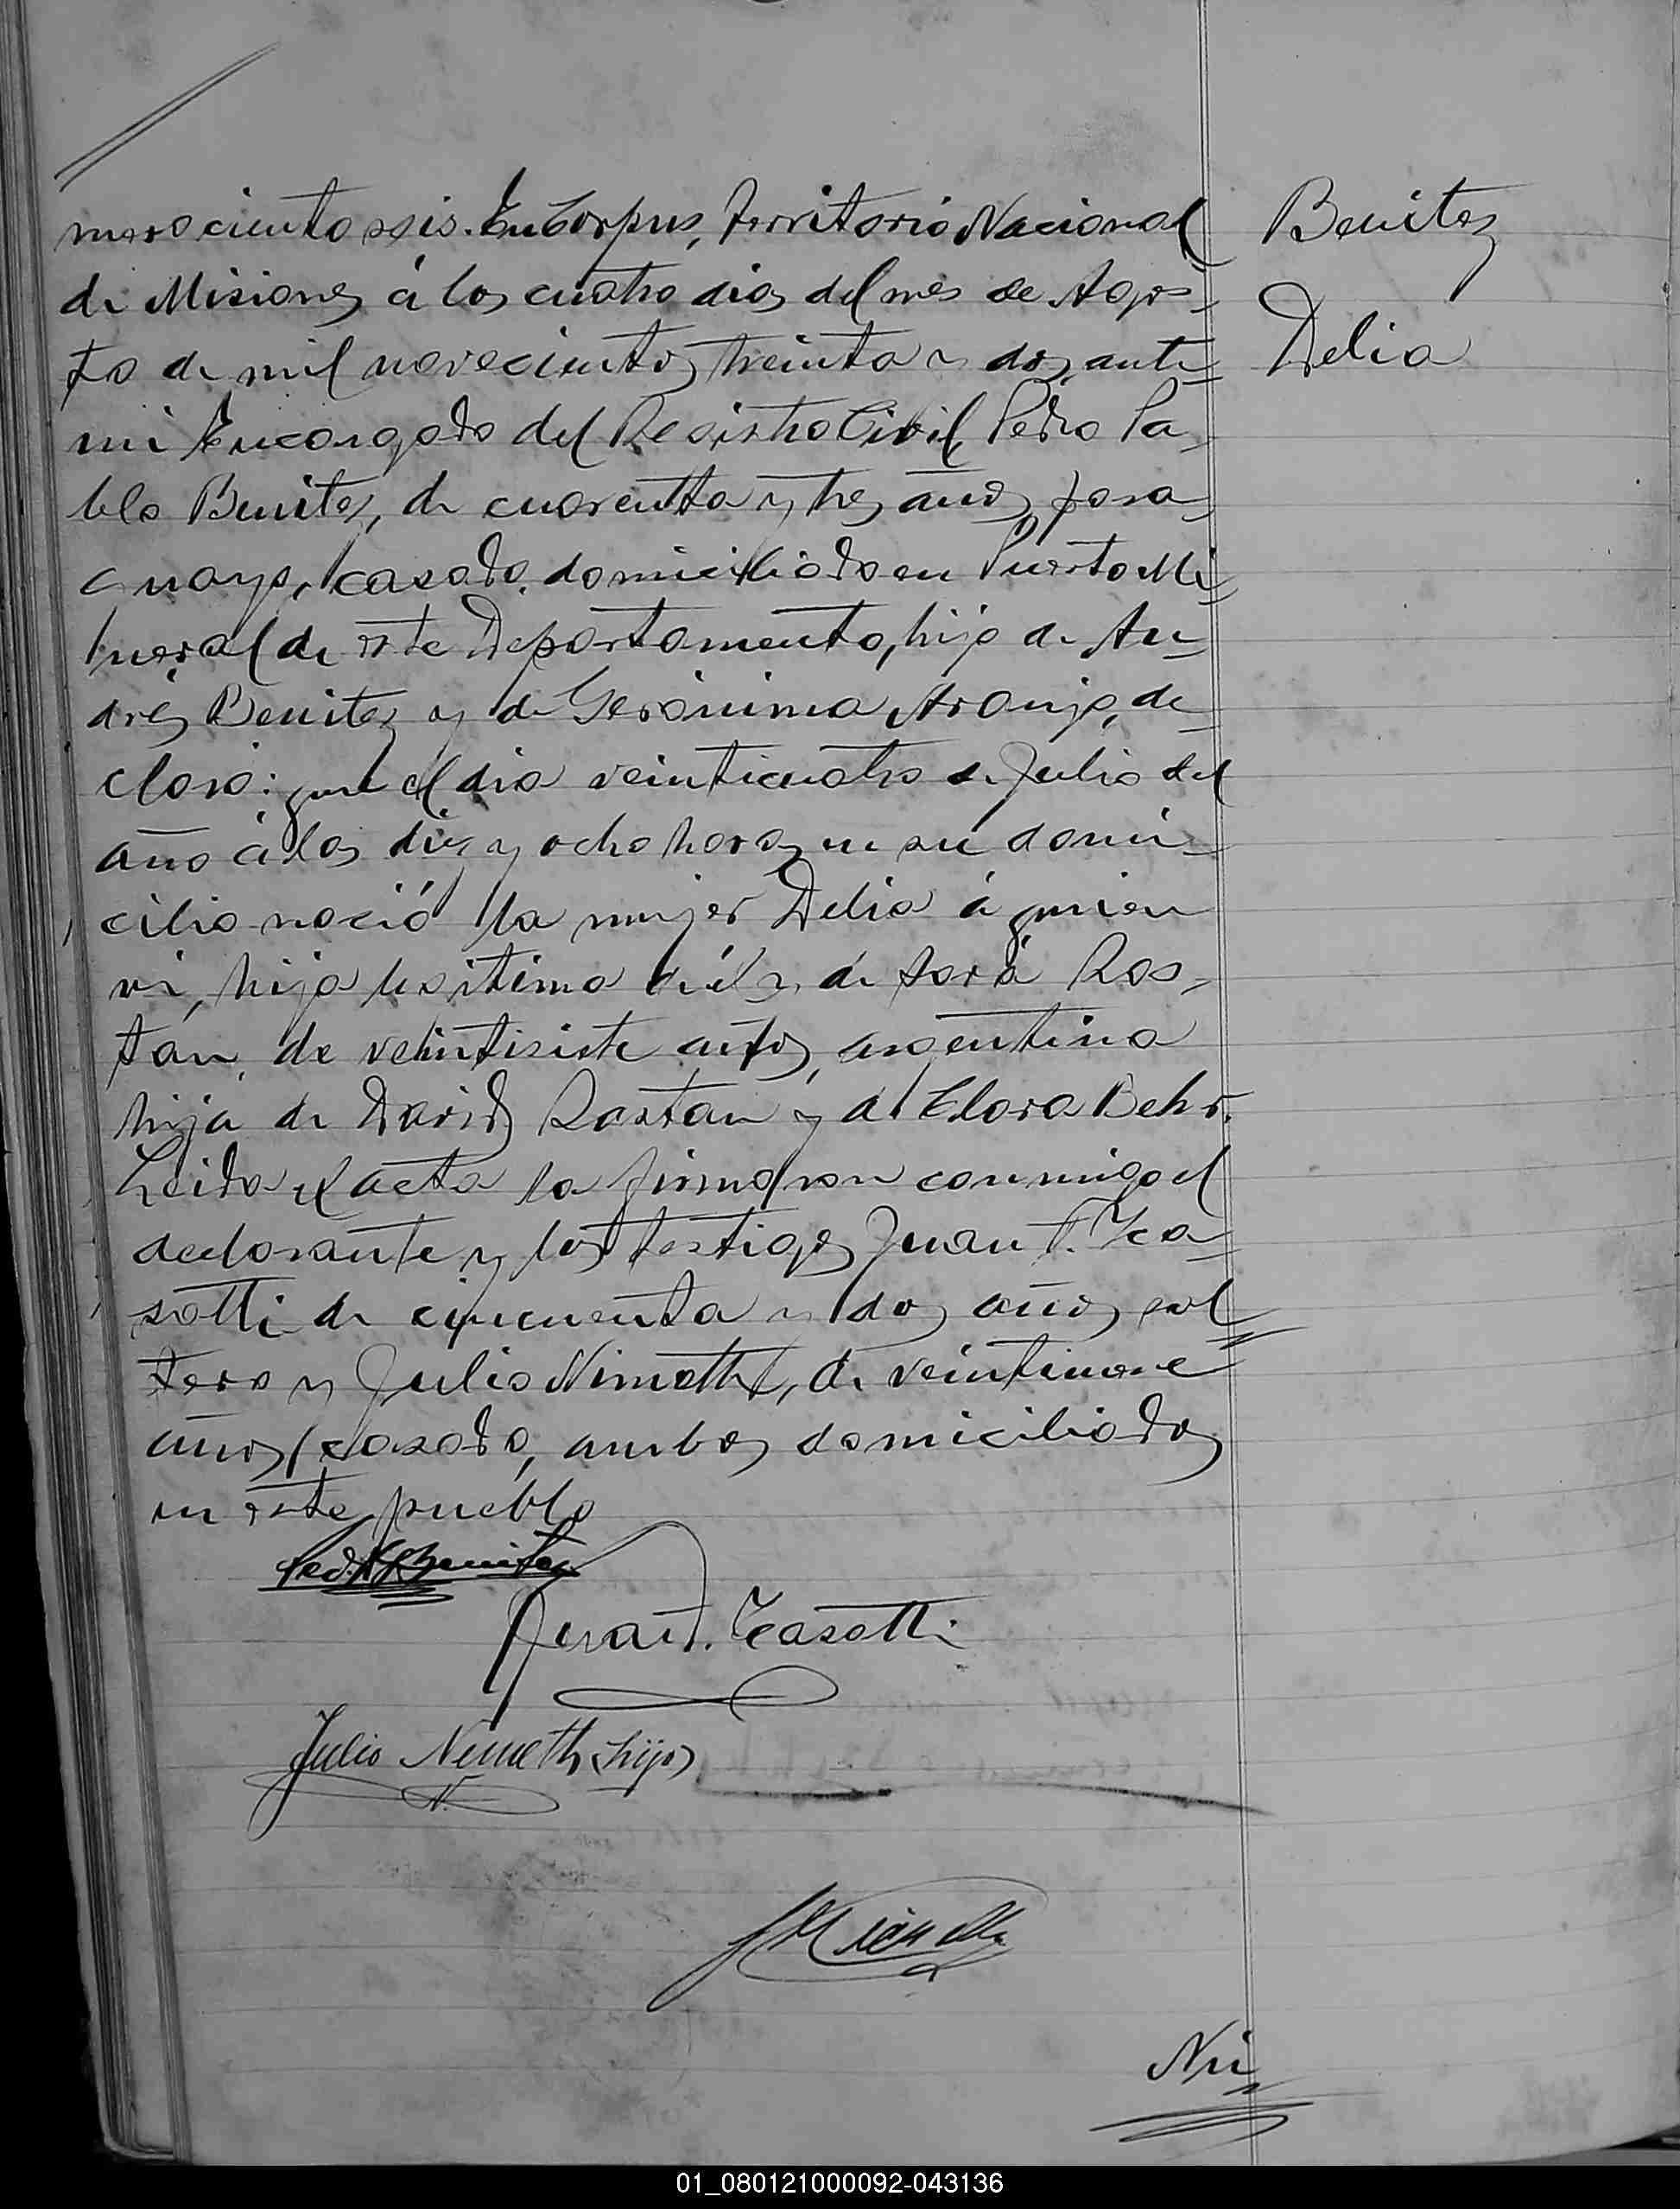 mero ciento seis. En Corpus, Territorio Nacional
de Misiones á los cuatro dias del mes de Agos-
to de mil novecientos treinta y dos, ante
mi Encargado del Registro Civil, Pedro Pa-
blo Benitez, de cuarenta y tres años, para-
guayo, casado, domiciliado en Puerto Mi-
neral de este Departamento, hijo de An-
drés Benitez y de Gerónima Araujo, de-
claró: que el dia veinticuatro de Julio del
año á las diez y ocho horas en su domi-
cilio nació la mujer Delia á quien
vi, hija legitima de él y de Sara Ros-
tán, de veintisiete años, argentina
hija de David Rostan y de Clara Behr.
Leida el acta la firmaron conmigo el
declarante y los testigos Juan T. Tca-
sotti de cincuenta y dos años, sol-
tero y Julio Nimeth, de veintinueve
años, casado, ambos domiciliados
en este pueblo
Pedro P Benitez
Juan T. Tcasotti
Julio Nemeth (hijo)
N.
Nú
Benitez
Delia
01_080121000092-043136